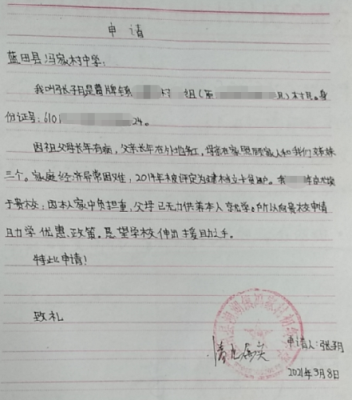 申请
蓝田县冯家村中学:
我叫张子月是普牌镇 村 组(第 月)村民。身
份证号:6101 24。
因祖父母长年有病,父亲长年在外打工,母亲在家照顾家人和我们姊妹
三个。家庭经济异常困难,2014年被评定为建档立卡贫困户。我 年
于贵校,因本人家中负担重,父母已无力供养本人 学。所以向贵校申请
助学优惠政策。希望学校伸出援助之手。
特此申请!
致礼
申请人:张子月
2021年3月8日